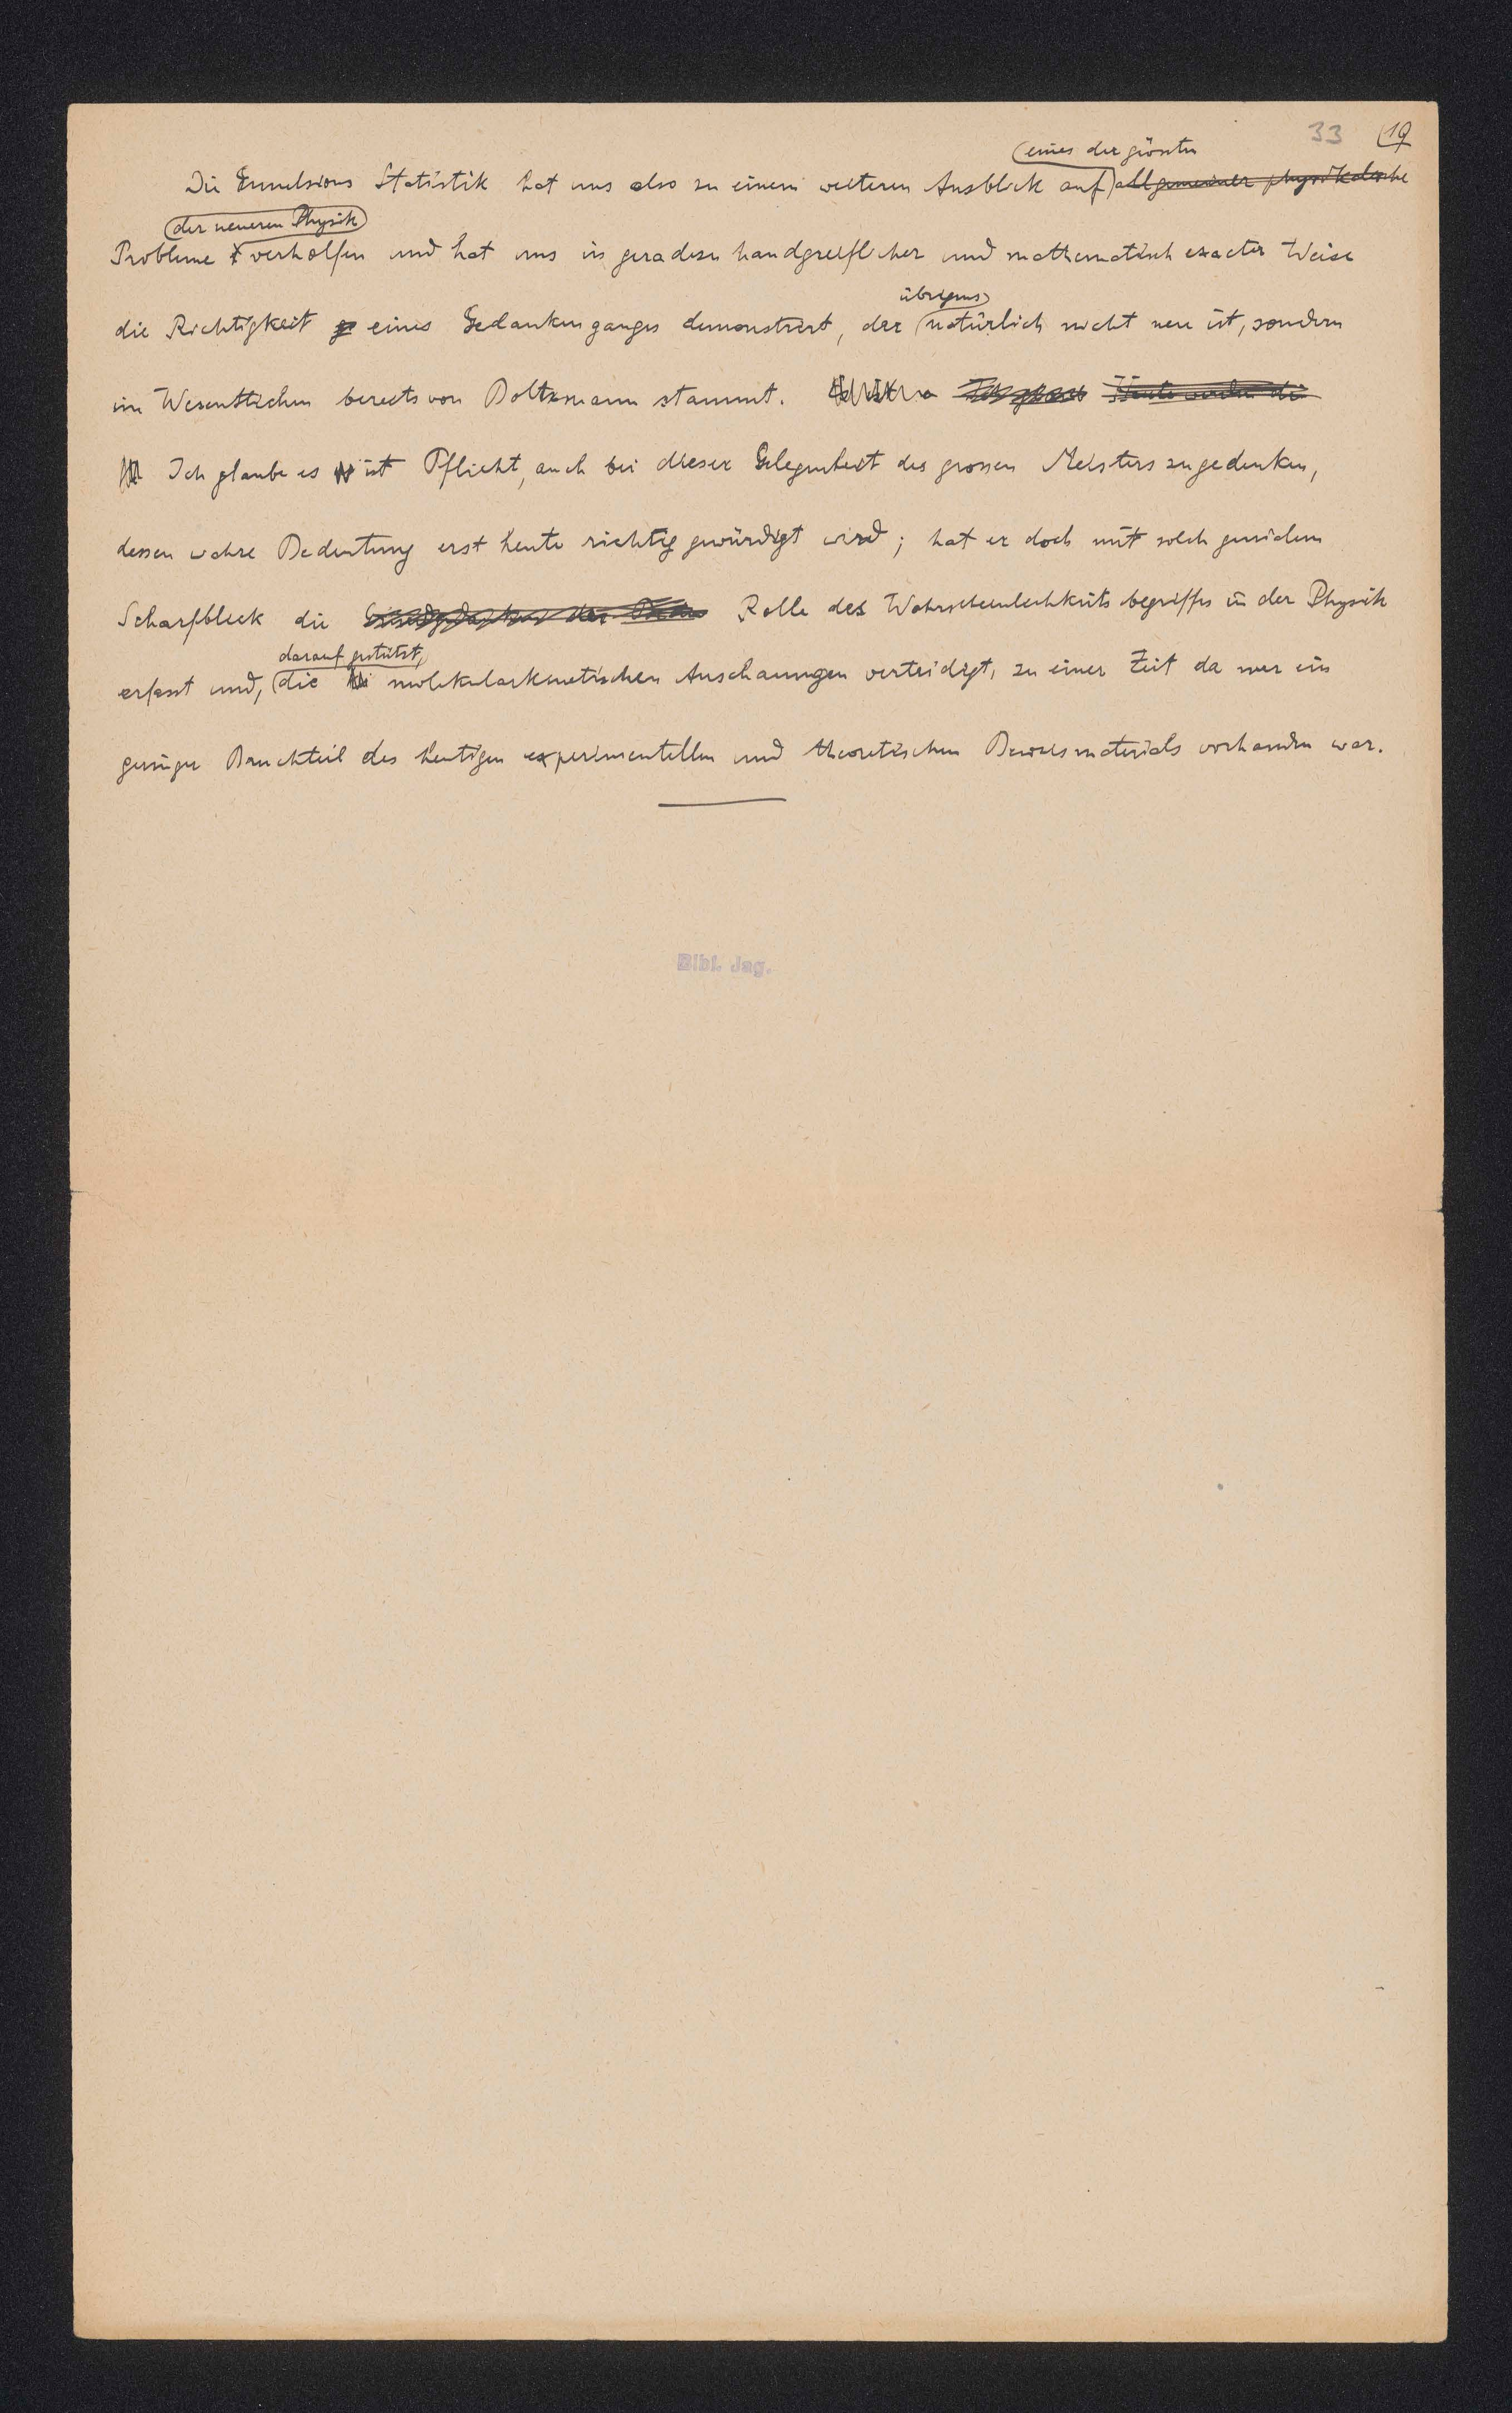 33 (19
eines der grössten
Die Emulsions Statistik hat uns also zu einem weiteren Ausblick auf allgemeiner physikalische
der neueren Physik
Probleme verholfen und hat uns in geradezu handgreiflicher und mathematisch exacter Weise
übrigens
die Richtigkeit eines Gedankenganges demonstriert, der natürlich nicht neu ist, sondern
im Wesentlichen bereits von Boltzmann stammt. Heute werden die
Ich glaube es ist Pflicht, auch bei dieser Gelegenheit des grossen Meisters zu gedenken,
dessen wahre Bedeutung erst heute richtig gewürdigt wird; hat er doch mit solch genialem
Scharfblick die Rolle des Wahrscheinlichkeitsbegriffes in der Physik
darauf gestützt,
erfasst und, die molekularkinetischen Anschauungen verteidigt, zu einer Zeit da nur ein
geringer Bruchteil des heutigen experimentellen und theoretischen Beweismaterials vorhanden war.
Bibl. Jag.